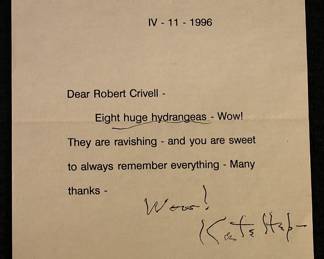 IV - 11 - 1996
Dear Robert Crivell -
Eight huge hydrangeas - Wow!
They are ravishing - and you are sweet
to always remember everything - Many
thanks -
Wow!
Kate Hep-